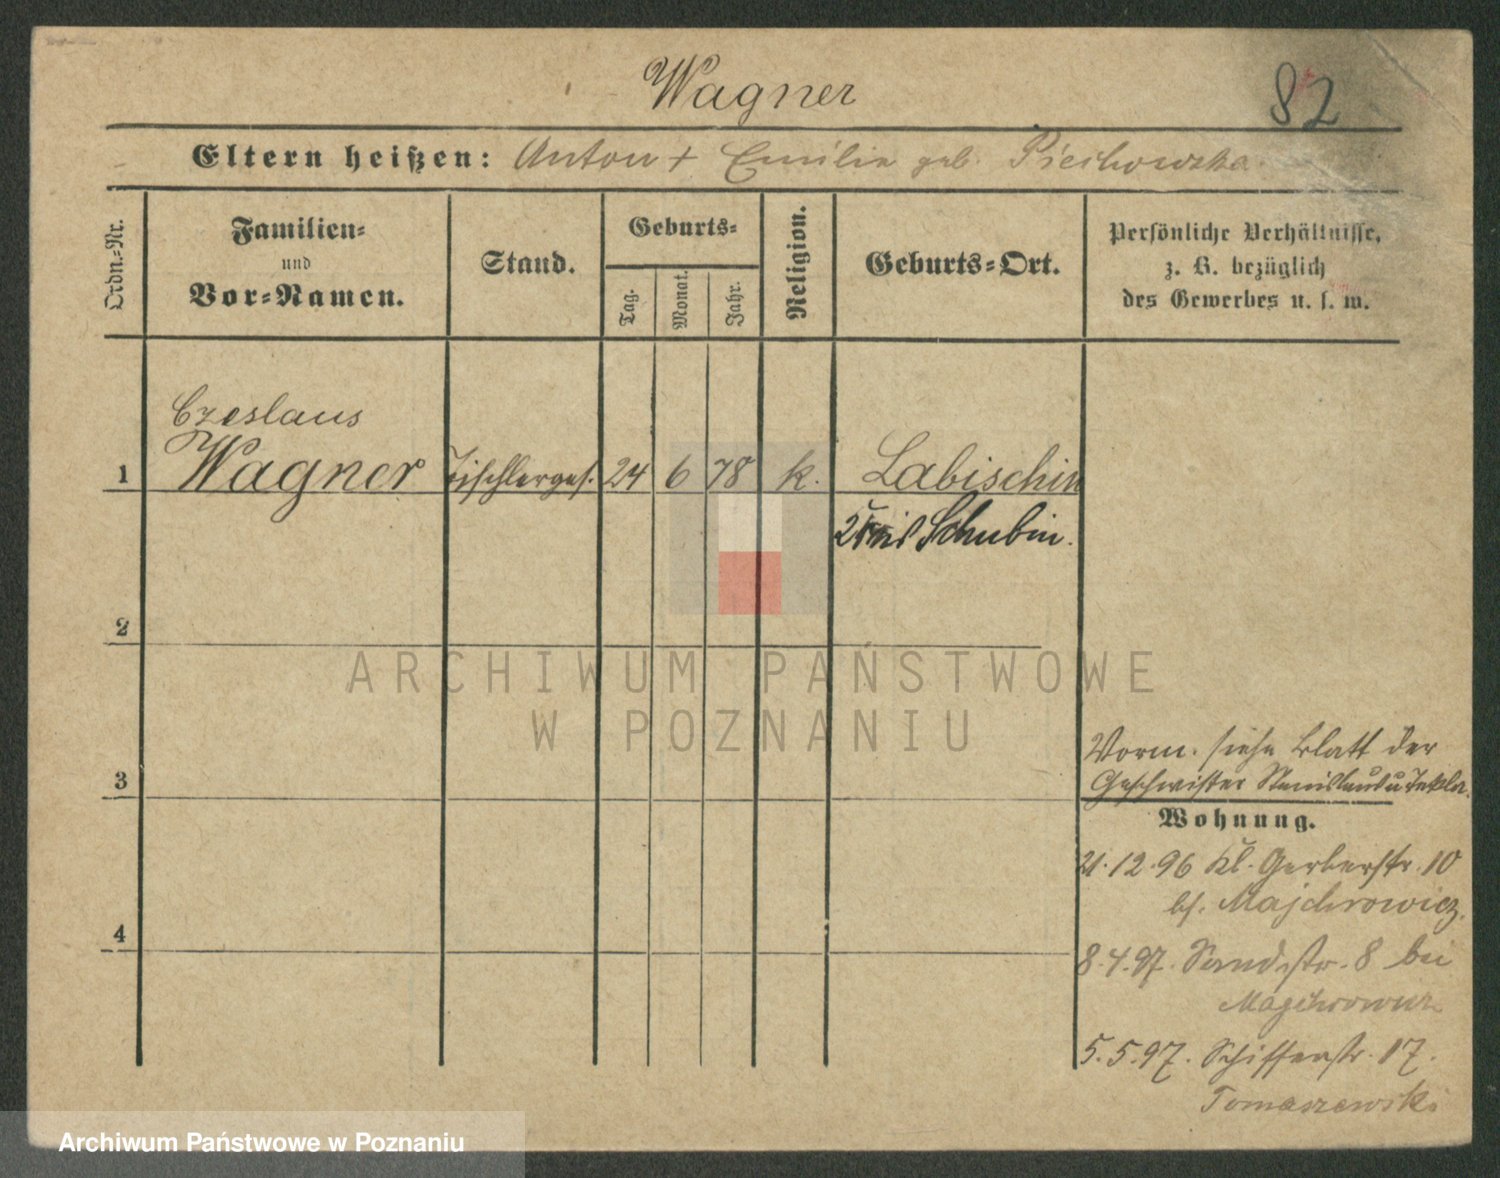 Wagner
82
Eltern heißen: Anton + Emilie geb. Piechowska
Ordn.-Nr.
Familien-
und
Vor-Namen.
Stand.
Geburts-
Tag.
Monat.
Jahr.
Religion.
Geburts-Ort.
Persönliche Verhältnisse,
z. B. bezüglich
des Gewerbes u. s. w.
Czeslaus
1 Wagner Tischlerges. 24 6 78 k. Labischin
Schubin.
2
3
4
Vorm. siehe Blatt der
Geschwister Stanislaus u Tekla.
Wohnung.
21.12.96 Kl. Gerberstr. 10
bs. Majchrowicz.
8.4.97. Sandstr. 8 bei
Majchrowicz
5.5.97. Schifferstr. 17.
Tomaszewski
ARCHIWUM PAŃSTWOWE
W POZNANIU
Archiwum Państwowe w Poznaniu